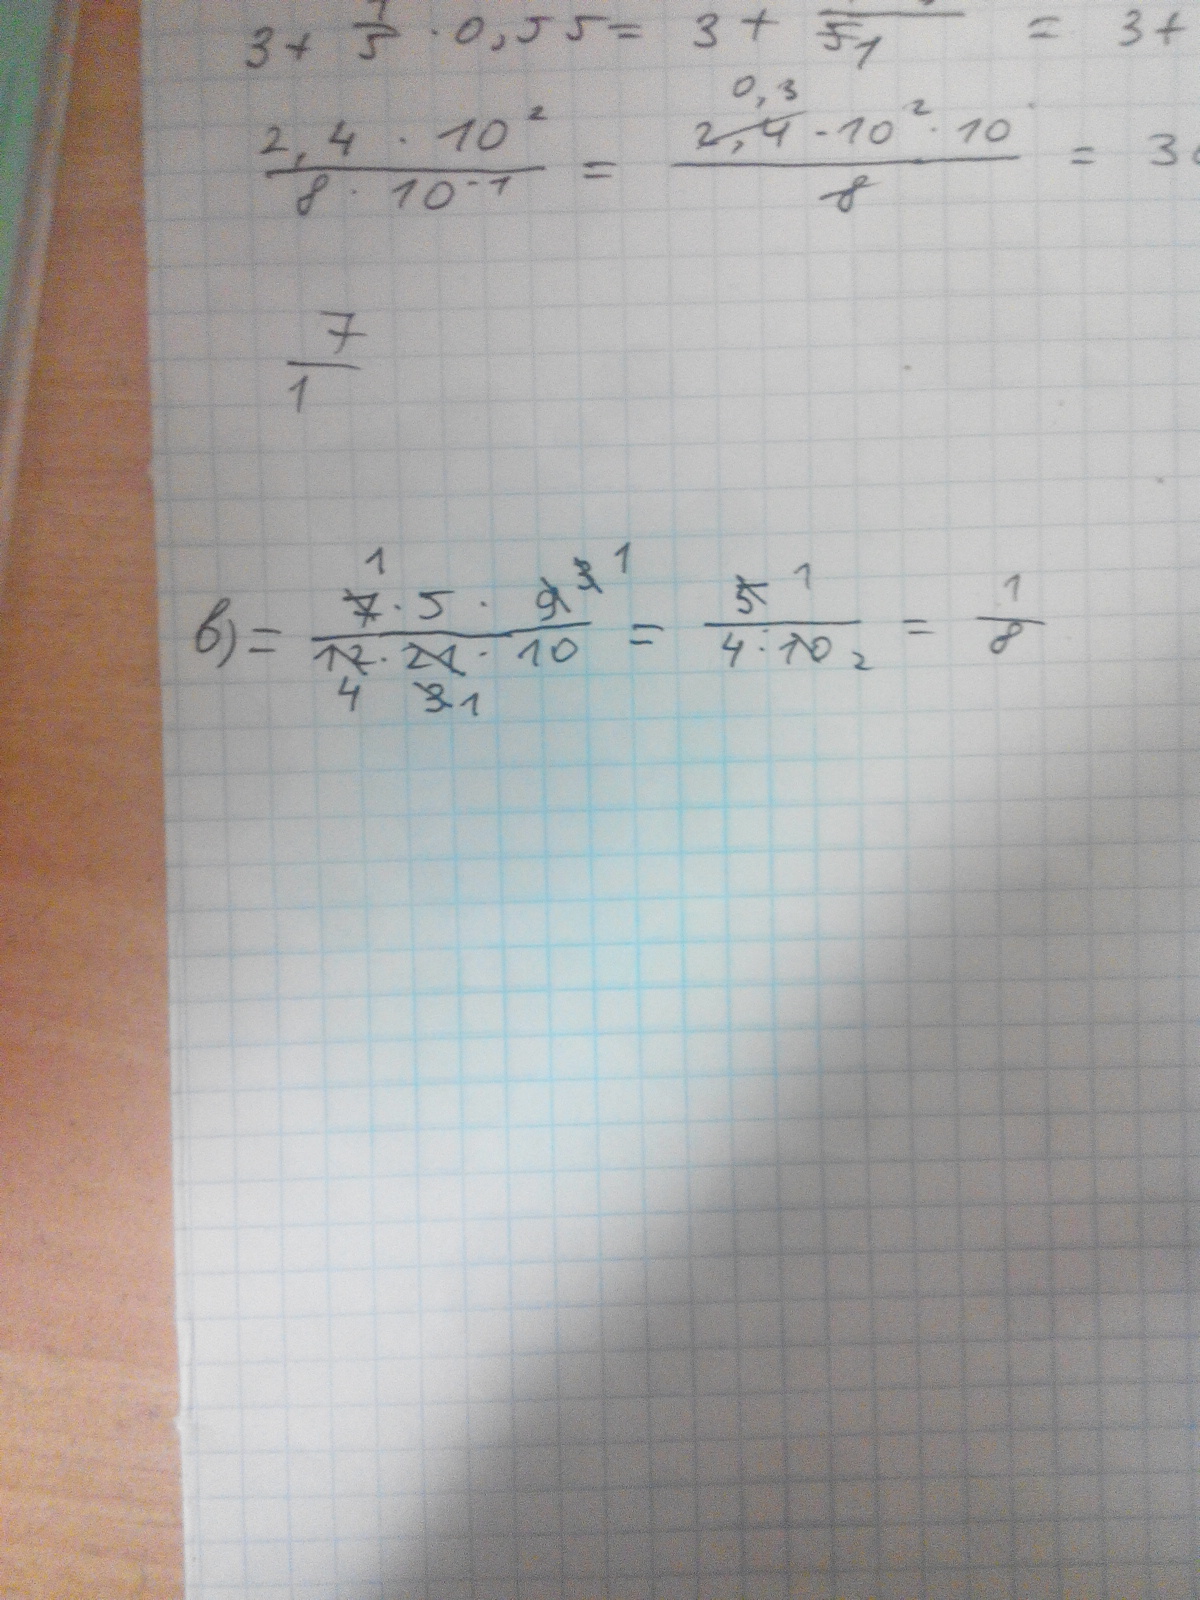 3 + 1/5 · 0,55 = 3 + /5 1 = 3 +
2,4 · 10² / 8 · 10⁻¹ = 0,3 2,4 · 10² · 10 / 8 = 3
7/1
в) = 1 7 · 5 · 9 3 1 / 12 · 21 · 10 4 3 1 = 5 1 / 4 · 10 2 = 1/8